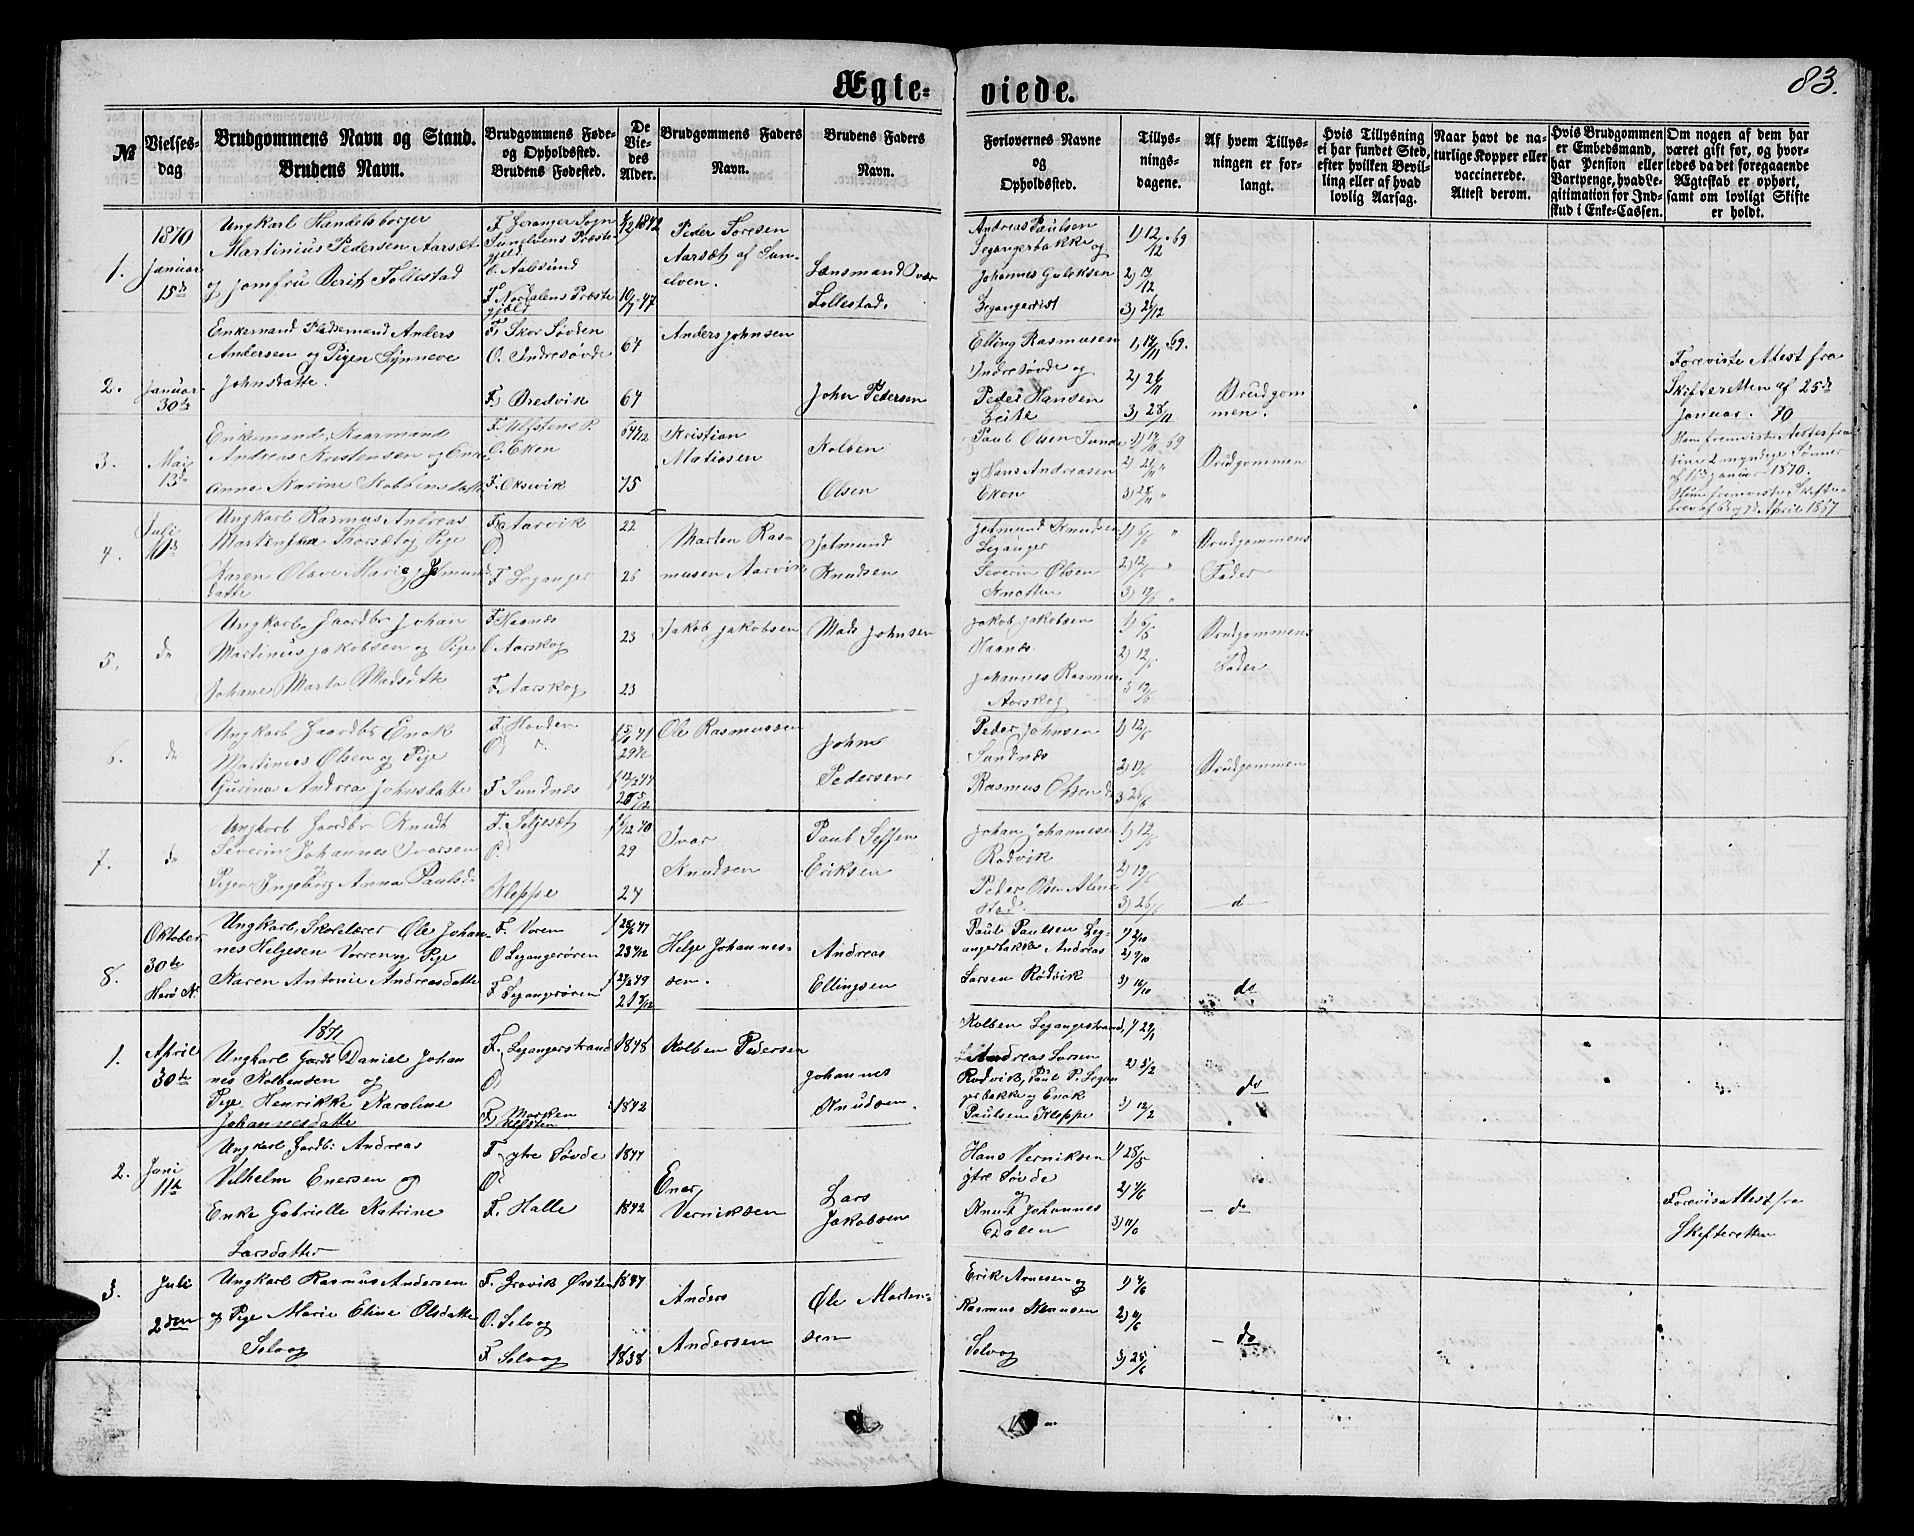 Ægte-
viede.
83.
№
Vielses-
dag
Brudgommens Navn og Stand.
Brudens Navn.
Brudgommens Føde-
og Opholdssted.
Brudens Fødested.
De
Vie-
des
Alder.
Brudgommens Faders
Navn.
Brudens Faders
Navn.
Forlovernes Navne
og
Opholdssted.
Tillys-
nings-
dagene.
Af hvem Tillys-
ningen er for-
langt.
Hvis Tillysning
ei har fundet Sted,
efter hvilken Bevil-
ling eller af hvad
lovlig Aarsag.
Naar havt de na-
turlige Kopper eller
vaccinerede.
Attest derom.
Hvis Brudgommen
er Embedsmand,
har Pension eller
Vartpenge, hvad Le-
gitimation for Ind-
skud i Enke-Cassen.
Om nogen af dem har
været gift før, og hvor-
ledes da det foregaaende
Ægteskab er ophørt,
samt om lovligt Skifte
er holdt.
1870
1.
Januar
15de
Ungkarl Handelsborger
Martinius Pedersen Aarsæt
og jomfru Berit Follestad
F. Geranger Sogn
Sunelvens Præste
gjeld
O. Aalesund
F. Nordalens Præste
gjeld
1842
10/7-47
Peder
Aarsæt af Sun-
elven.
Lænsmand Ivar
Follestad.
Andreas Paulsen
Legangerbakke og
Johannes Guleksen
1) 12/12 69
2) 19/12
3) 26/12
2.
Januar
30te
Enkemand Anders
Andersen og Pigen Synneve
Johnsdatte.
F. Skor Søvden
O. Indresøvde
F. Bredvik
67
64
Anders Johnsen
John Pedersen
Elling Rasmusen
Indresøvde og
Peder Hansen
Zeite
1) 14/11 69.
2) 21/11
3) 28/11
Brudgom
men.
Foreviste Attest fra
Skifteretten af 25de
Januar. 70
3.
Mai
13de
Enkemand, Kaarmand
Andreas Kristensen og Enke
Anne Karine Kolbensdatte
F. Ulfstens P.
O. Eken
F. Oksevik
75
Kristian
Matiasen
Kolben
Olsen
Paul Olsen Tunde
og Hans Andreasen
Eken
1) 14/11 69
2) 21/11 "
3) 28/11 "
Brudgommen
sine 2 myndige Sønner
af 13 Januar 1870.
Hun fremviste Skifte-
brev af 6 og 7 April 1867
4.
Juli
10de
Ungkarl Rasmus Andreas
Martensen Thorsæt og Pige
Karen Olave Marie Jetmund
datte
F. Aarvik
O.
F. Leganger
22
26
Marten Ras-
musen Aarvik
Jetmund
Knudsen
Jetmund Knudsen
Leganger
Severin Olsen
Knotten
1) 5/6 "
2) 12/6 "
3) 19/6 "
Brudgommens
Fader
5.
do
Ungkarl, Gaardbr Johan
Martinus Jakobsen og Pige
Johane Marta Madsdtte
F. Haanes
O Aarskog
F. Aarskog
23
23
Jakob Jakobsen
Mads Johnsen
Jakob Jakobsen
Haanes
Johannes Rasmus.
Aarskog
1) 5/6
2) 12/6
3 19/6
Brudgommens
Fader
6.
do
Ungkarl Gaardbr Enok
Martinus Olsen og Pige
Gurine Andrea Johnsdatte
F. Hovden
O) "
F. Sundnæs
Ole Rasmussen
John
Pedersen
Peder Johnsen
Sundnæs
Rasmus Olsen do
1) 12/6
2) 19/6
3 26/6
Brudgommen
7.
do
Ungkarl Gaardbr Knudt
Severin Johannes Ivarsen
Pigen Ingeborg Anna Paulsd.
F. Seljesæt
O.
Kleppe
29
24
Ivar
Knudsen
Paul Steffen
Eriksen
Johan Johannesen
Rødvik
Peder Olsen
1) 12/6
2) 19/6
3) 26/6
— d —
8.
Oktober
30te
Herø K.
Ungkarl, Skolelærer Ole Johan-
nes Helgesen Vorren og Pige
Karen Antonie Andreasdatte
F. Voren
O Legangerøren
F. Legangerøren
Helge Johannes-
sen.
Andreas
Ellingsen
Paul Paulsen Leg-
angerbakke Andreas
Larsen Rødvik
1) 2/10
2) 9/10
3) 16/10
do
1871
1.
April
30te
Ungkarl Gardt Daniel Johan
nes Kolbensen og
Pige, Henrikke Karoline
Johannesdatte
F. Legangerstrand
O)
F) Morken
Ulfsten
1848
1842
Kolben Pedersen
Johannes
Knudsen.
Kolben Legangerstrand,
Andreas Larsen
Rødvik, Paul P. Legan
gerbakke og Enok
Paulsen Kleppe
1) 29/1
2) 5/2
3) 12/2
do
2.
Juni
11te
Ungkarl Gardb: Andreas
Vilhelm Enersen og
Enke Gabrielle Katrine
Larsdatter
F. ytre Søvde
O.
F. Halle
1847
1842
Ener
Verniksen
Lars
Jakobsen
Hans Verniksen
ytre Søvde
og
Knut Johannes
Dalen
1) 28/5
2) 4/6
3) 11/6
— do
Forevis Attest fra
Skifteretten
3.
Juli
2den
Ungkarl Rasmus Andersen
og Pige Marie Eline Olsdatte
Selvog
F. Grovik Ørsten
O. Selvog
F Selvog
1847
1838
Anders
Andersen
Ole Marten-
sen
Erik Arnesen og
Rasmus
Selvog
1) 4/6
2) 11/6
3) 25/6
— do